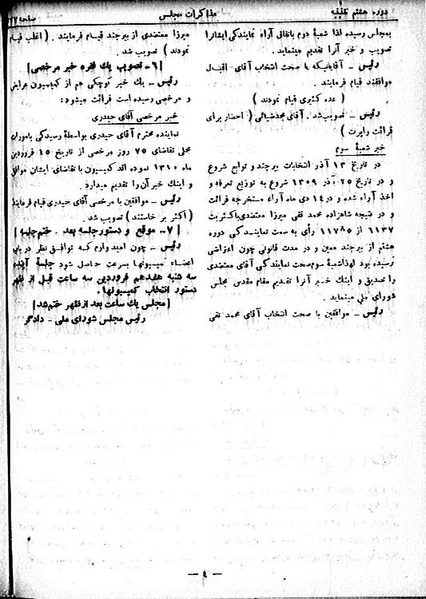 دوره هشتم تقنینیه
مذاکرات مجلس
صفحه ۲۷
بمجلس رسیده لذا شعبه دوم باتفاق آراء نمایندگی ایشانرا
تصویب و خبر آنرا تقدیم مینماید.
رئیس ـ آقایانیکه با صحت انتخاب آقای اقبال
موافقند قیام فرمایند.
(عده کثیری قیام نمودند)
رئیس ـ تصویب شد. آقای مخبر (احضار برای
قرائت راپرت)
خبر شعبه سوم
در تاریخ ۱۳ آذر انتخابات بیرجند و توابع شروع
و در تاریخ ۲۵ آذر ۱۳۰۹ شروع به توزیع تعرفه و
اخذ آراء شده و در ۱۴ دی ماه آراء مستخرجه قرائت
و در نتیجه شاهزاده محمد تقی میرزا معتضدی باکثریت
۱۱۳۷ از ۱۱۷۸۵ رأی به سمت نمایندگی دوره
هشتم از بیرجند معین و در مدت قانونی چون اعتراضی
نرسیده بود لهذا شعبه سوم صحت نمایندگی آقای معتضدی
را تصدیق و اینك خبر آنرا تقدیم مقام مقدس مجلس
شورای ملی مینماید.
رئیس ـ موافقین با صحت انتخاب آقای محمد تقی
میرزا معتضدی از بیرجند قیام فرمایند. (اغلب قیام
نمودند) تصویب شد.
[۶ـ تصویب یك فقره خبر مرخصی]
رئیس ـ یك خبر کوچکی هم از کمیسیون عرایض
و مرخصی رسیده است قرائت میشود:
خبر مرخصی آقای حیدری
نماینده محترم آقای حیدری بواسطه رسیدگی بامور
محلی تقاضای ۷۵ روز مرخصی از تاریخ ۱۵ فروردین
ماه ۱۳۱۰ نموده اند کمیسیون با تقاضای ایشان موافق
و اینك خبر آن را تقدیم میدارد.
رئیس ـ موافقین با مرخصی آقای حیدری قیام فرمایند
(اکثر بر خاستند) تصویب شد.
[۷ـ موقع و دستور جلسه بعد ـ ختم جلسه]
رئیس ـ چون امیدوارم که توافق نظر در باب
اعضاء کمیسیونها بسرعت حاصل شود جلسه آینده
سه شنبه هیجدهم فروردین سه ساعت قبل از ظهر
دستور انتخاب کمیسیونها.
(مجلس یك ساعت بعد از ظهر ختم شد)
رئیس مجلس شورای ملی ـ دادگر
— ٤ —